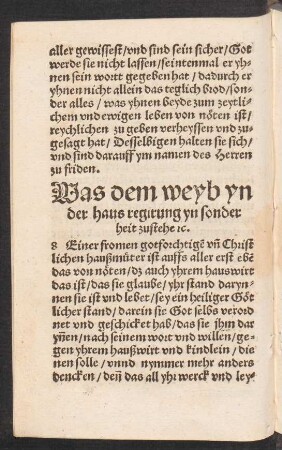 aller gewissest/vnd sind sein sicher/Got
werde sie nicht lassen/seintenmal er yh-
nen sein wortt gegeben hat/dadurch er
yhnen nicht allein das teglich brod/son-
der alles/was yhnen beyde zum zeytli-
chem vnd ewigen leben von nöten ist/
reychlichen zu geben verheyssen vnd zu-
gesagt hat/Desselbigen halten sie sich/
vnd sind darauff ym namen des Herren
zu friden.
Was dem weyb yn
der haus regirung yn sonder
heit zustehe ꝛc.
8 Einer fromen gotforchtigē vñ Christ
lichen haußmůter ist auffs aller erst ebē
das von nöten/dz auch yhrem hauswirt
das ist/das sie glaube/yhr stand daryn-
nen sie ist vnd lebet/sey ein heiliger Göt
licher stand/darein sie Got selbs verord
net vnd geschicket hab/das sie jhm dar
yñen/nach seinem wort vnd willen/ge-
gen yhrem haußwirt vnd kindlein/die
nen solle/vnnd nymmer mehr anders
dencken/deñ das all yhr werck vnd ley-